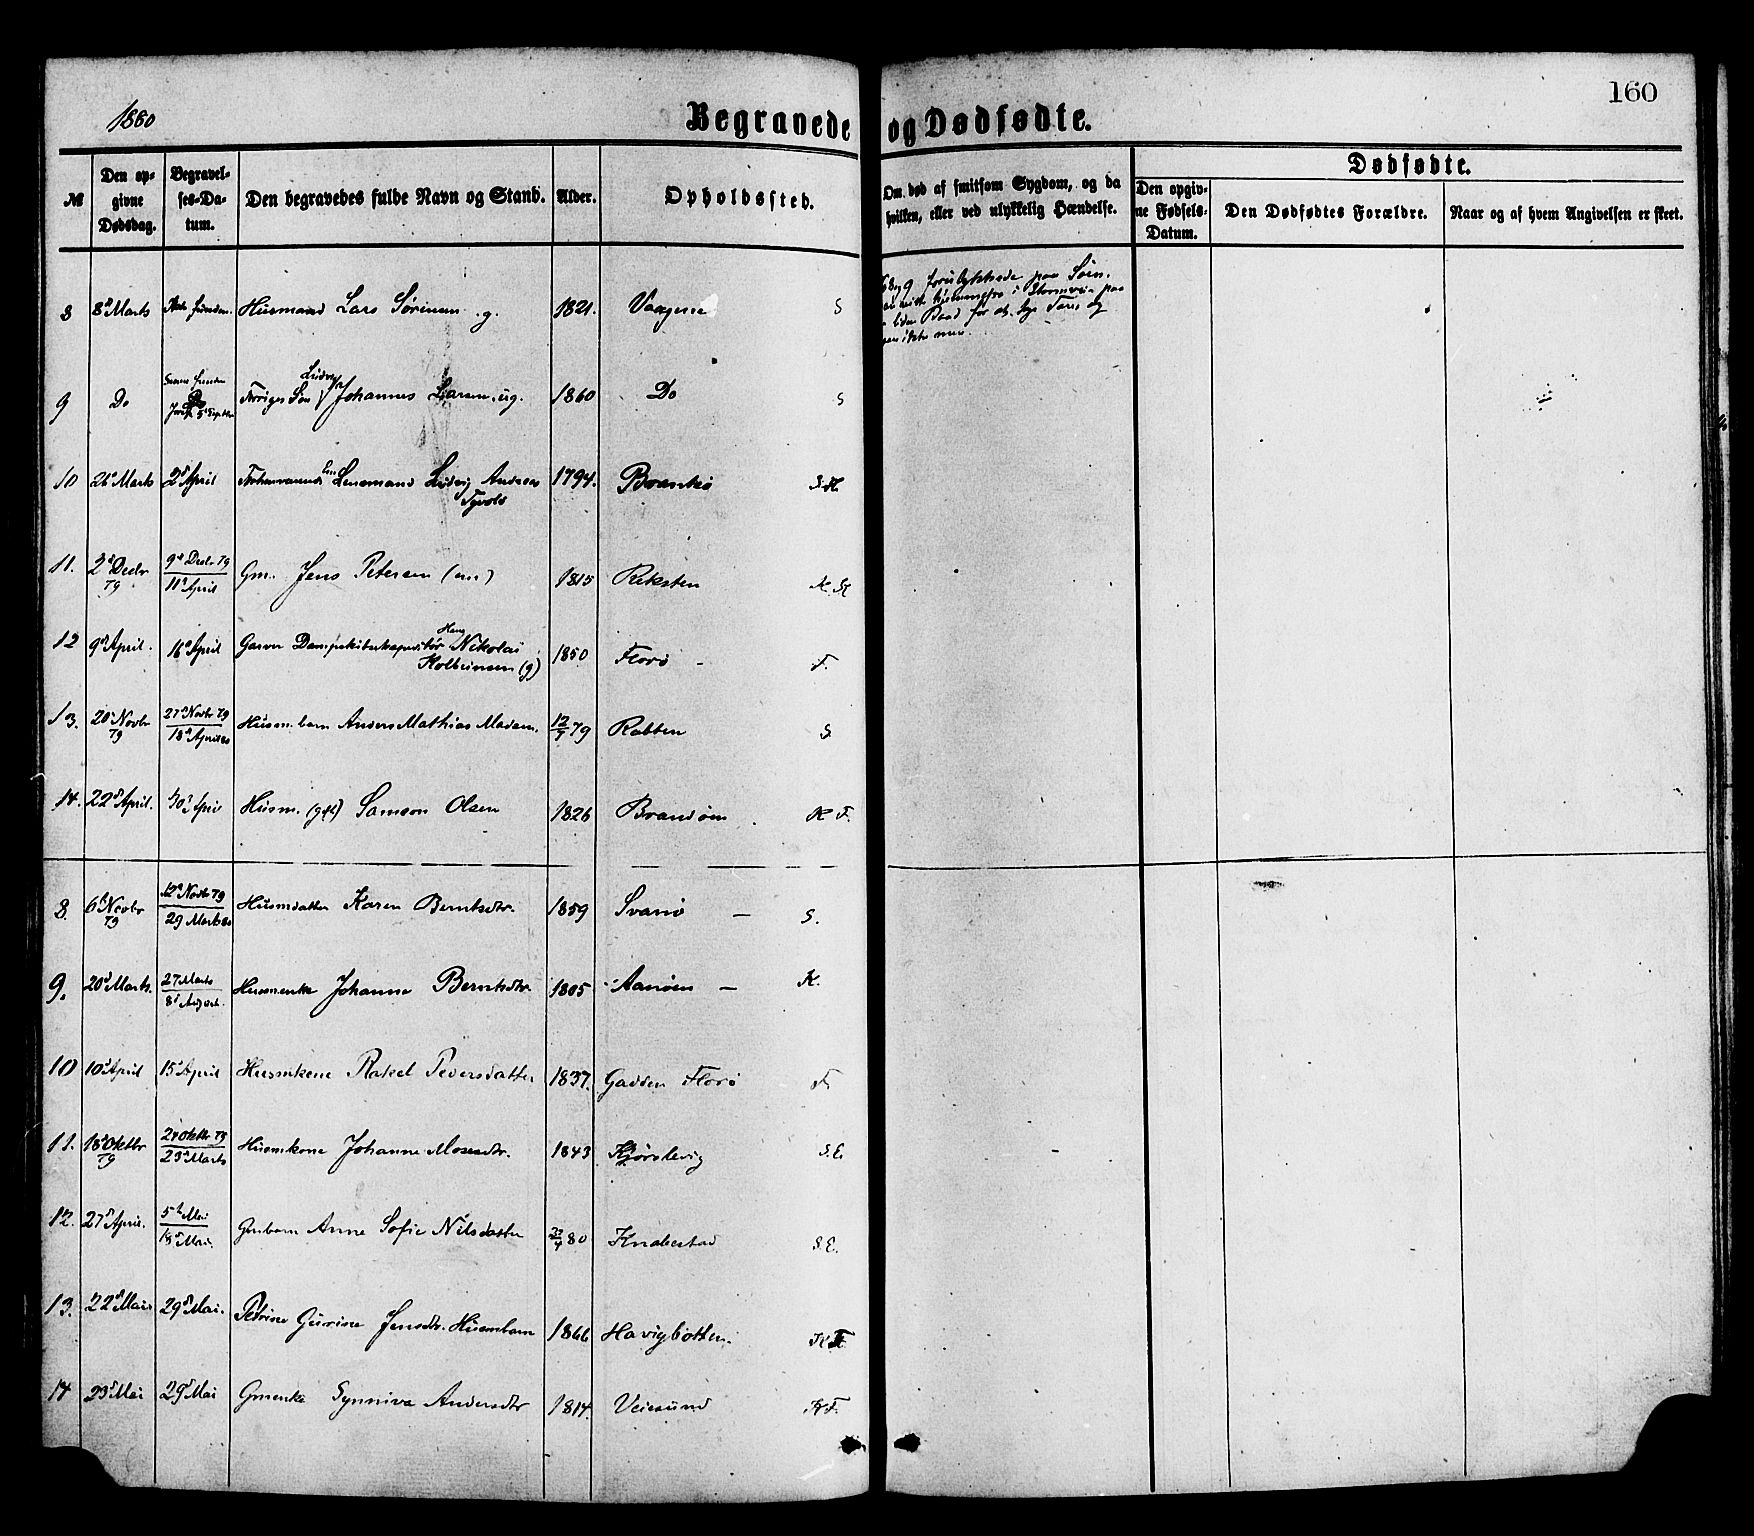 160
1880
Begravede og Dødfødte.
Dødfødte.
№
Den opgivne Dødsdag.
Begravelses-Datum.
Den begravedes fulde Navn og Stand.
Alder.
Opholdssted.
Om død af smitsom Sygdom, og da hvilken, eller ved ulykkelig Hændelse.
Den opgivne Fødsels-Datum.
Den Dødfødtes Forældre.
Naar og af hvem Angivelsen er skeet.
8 8d Marts Husmand Lars Sörensen g. 1821. Vaagene S
8 og 9 forulykkede paa Söen
i Stormveir paa
Baad for at
9 Do Ludvig Johannes Larsen, ug. 1860 Do S
10 26 Marts 2d April Lensmand Ludvig Andreas 1794. Brantsö S.K.
11. 3d Decbr 79 9de Decbr 79 11te April Gm. Jens Petersen (em) 1815 Reksten K. K
12 9d April. 16d April Hans Nikolai 1850 Florö F.
Kolbeinsen (g)
13. 20d Novbr 79 27d Novbr 79 18d April 80 Husm. barn Anders Mathias Madsen. 12/7 79 Rabben S.
14. 22d April. 30d April Husm. (gft) Samson Olsen 1826 Brandöen K F.
8. 6d Novbr 79 12d Novbr 79 29 Marts 80 Husmdatter Karen Berntsdtr. 1859 Svanö - S.
9. 20d Marts. 27 Marts 8d August. Husmenke Johanne Berntsdtr. 1805 Aaröen - K.
10 10d April 15d April Husmkone Rakel Pedersdatter 1837. Gadden Florö F.
11. 18d Oktbr 79 24 Oktbr 79 23d Marts Husmkone Johanne Mosesdtr. 1843 S.E.
12. 27d April. 5te Mai 18d Mai. Gmbarn Anne Sofie Nilsdatter 80 Knabestad S.E.
13. 22d Mai 29d Mai. Petrine Gurine Jensdtr. Husmbarn 1866 Havigbotten. K F.
14 23d Mai 29d Mai Gmenke Synniva Andersdtr 1814. Veiesund K F.